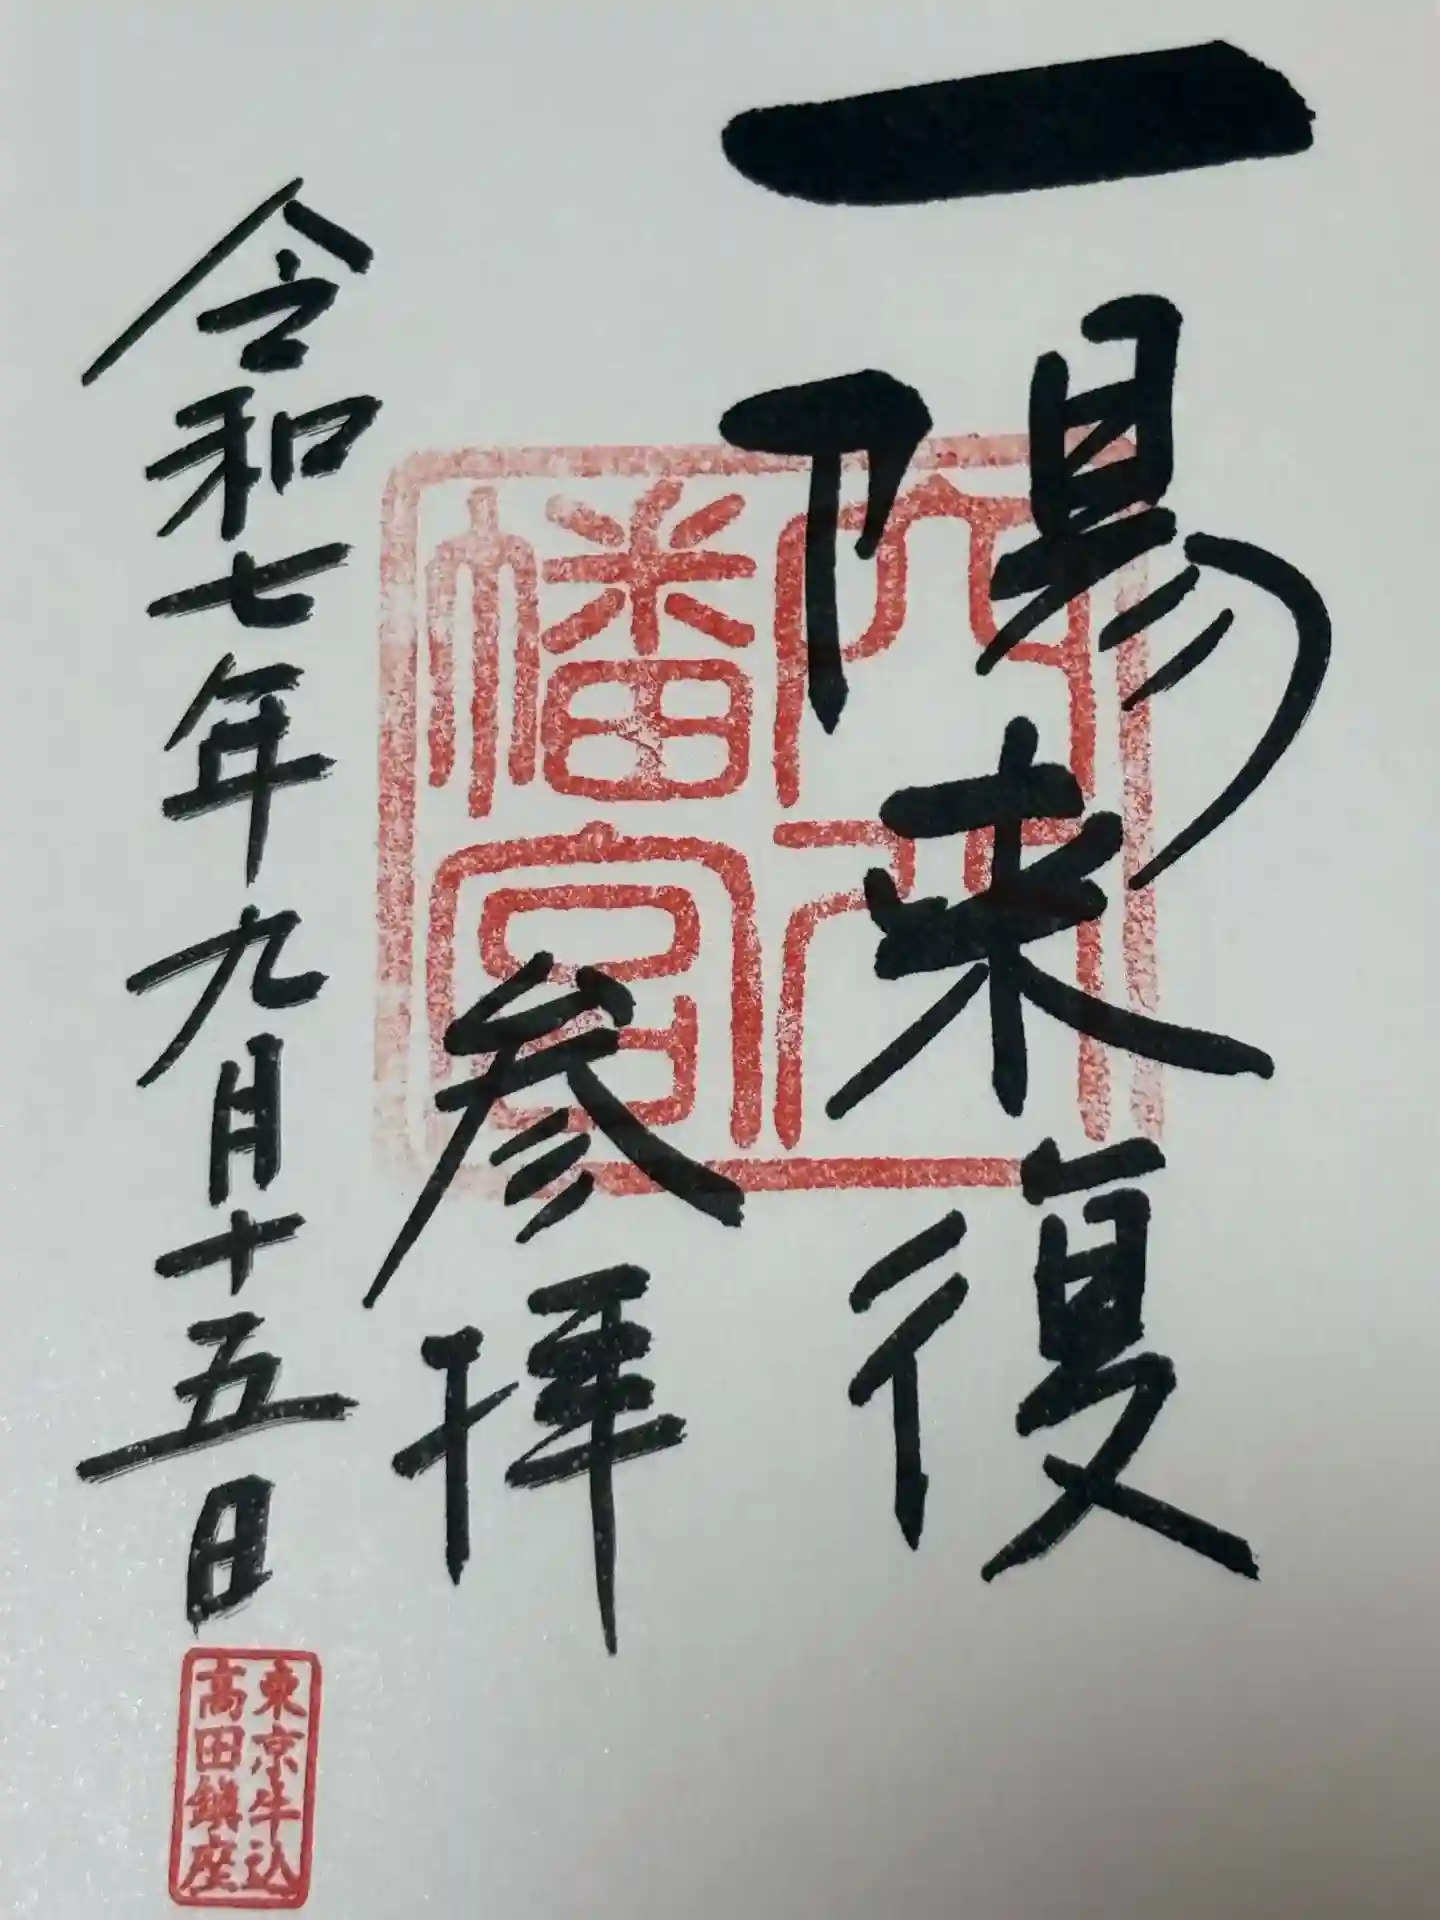 一陽来復
穴八
幡宮
参拝
令和七年九月十五日
東京牛込
高田鎮座